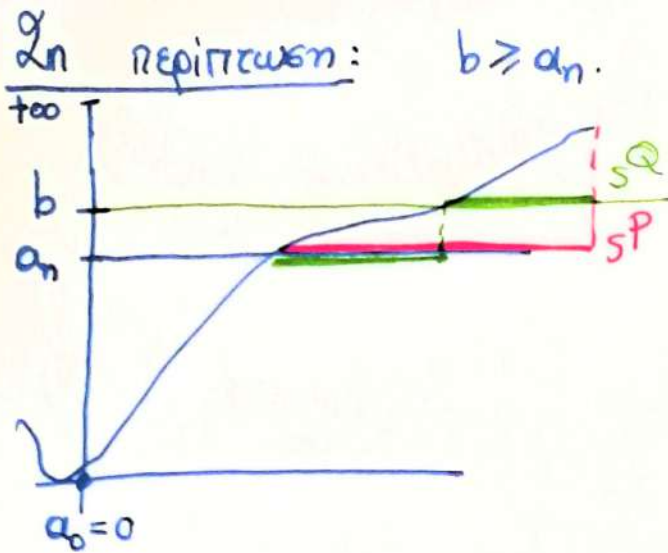 2η περίπτωση: b ≥ aₙ.
+∞
b
aₙ
s^Q
s^P
a₀=0